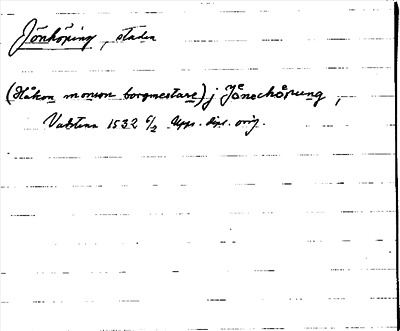 Jönköping, staden
(Håkon monson borgmestare) j Jönechöpung,
Vadstena 1532 6/2 Upps. dipl. orig.